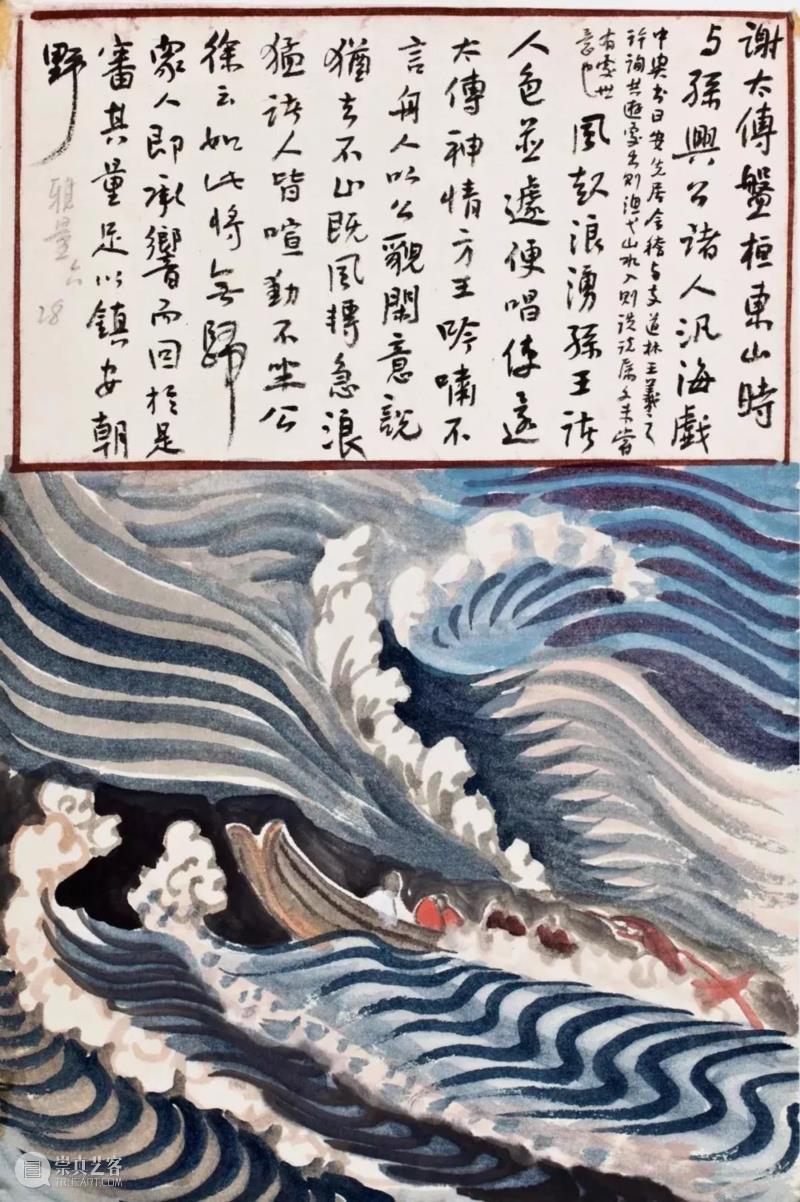 謝太傅盤桓東山時
与孫興公諸人汎海戲
中兴书曰安先居会稽与支道林王羲之
許詢共遊處出則漁弋山水入則談說屬文未嘗
有處世
意也
風起浪湧孫王諸
人色並遽便唱使還
太傅神情方王吟嘯不
言舟人以公貌閑意說
猶去不止既風轉急浪
猛諸人皆喧動不坐公
徐云如此將無歸
眾人即承響而回於是
審其量足以鎮安朝
野
雅量六
28
崇真艺客
TRUEART.COM